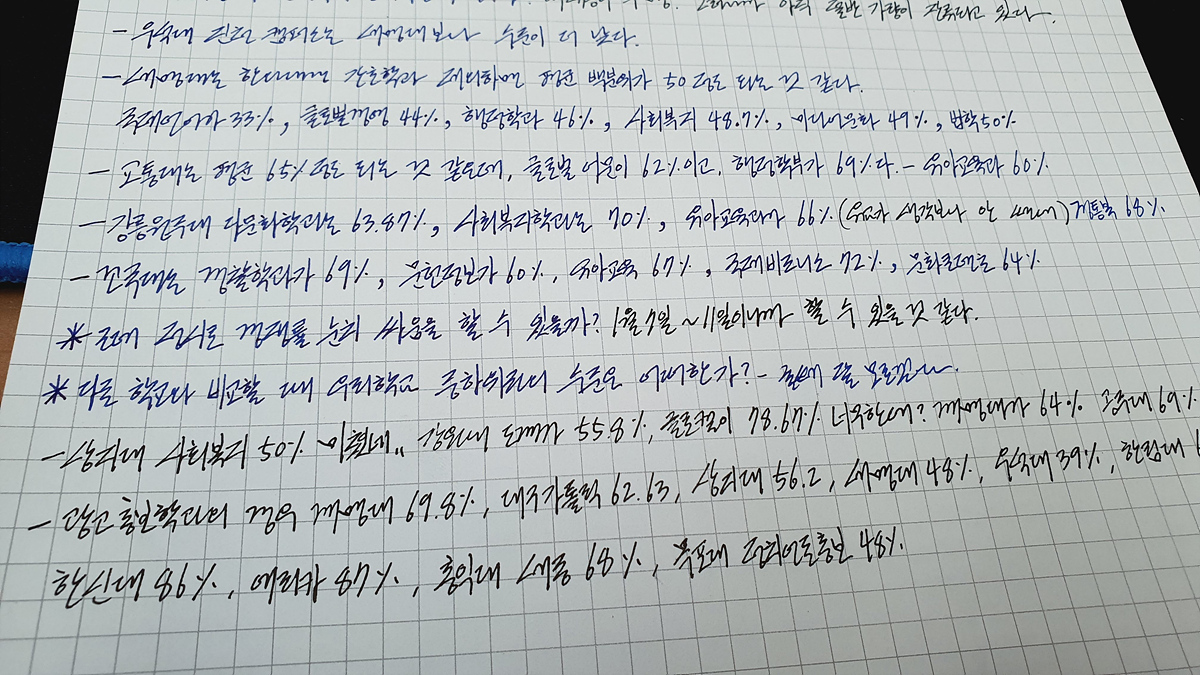 아직 절반 가량이 남았다고 있다.
- 우석대 진천 캠퍼스는 세명대보나 수준이 더 낮다.
- 세명대는 한의대에 간호학과 제외하면 평균 백분위가 50 정도 되는 것 같다.
국제언어아 33%, 글로벌경영 44%, 행정학과 46%, 사회복지 48.7%, 미디어문화 49%, 법학 50%
- 교통대는 평균 65% 정도 되는 것 같은데, 글로벌 어문이 62%이고, 행정학부가 69%다. - 유아교육과 60%
- 강릉원주대 다문화학과는 63.87%, 사회복지학과는 70%, 유아교육과가 66% (유교과 생각보다 안 쎄네) 정통북 68%
- 건국대는 경찰학과가 69%, 문헌정보가 60%, 유아교육 67%, 국제비즈니스 72%, 문화콘텐츠 64%
* 문제 점시로 경쟁률 눈치 싸움을 할 수 있을까? 1월 7일 ~ 11일이니까 할 수 있을 것 같다.
* 다른 학교와 비교할 때 우리학교 중하위과의 수준은 어떠한가? - 현재 잘 모르겠다.
- 상지대 사회복지 50% 이현대,, 강원대 55.8%, 글로컬이 78.67% 너무한데? 계명대가 64% 공주대 69%
- 광고홍보학과의 경우 계명대 69.8%, 대구가톨릭 62.63, 상지대 56.2, 세명대 48%, 우석대 39%, 한림대
한신대 86%, 에리카 87%, 홍익대 세종 68%, 목포대 언론홍보 48%.